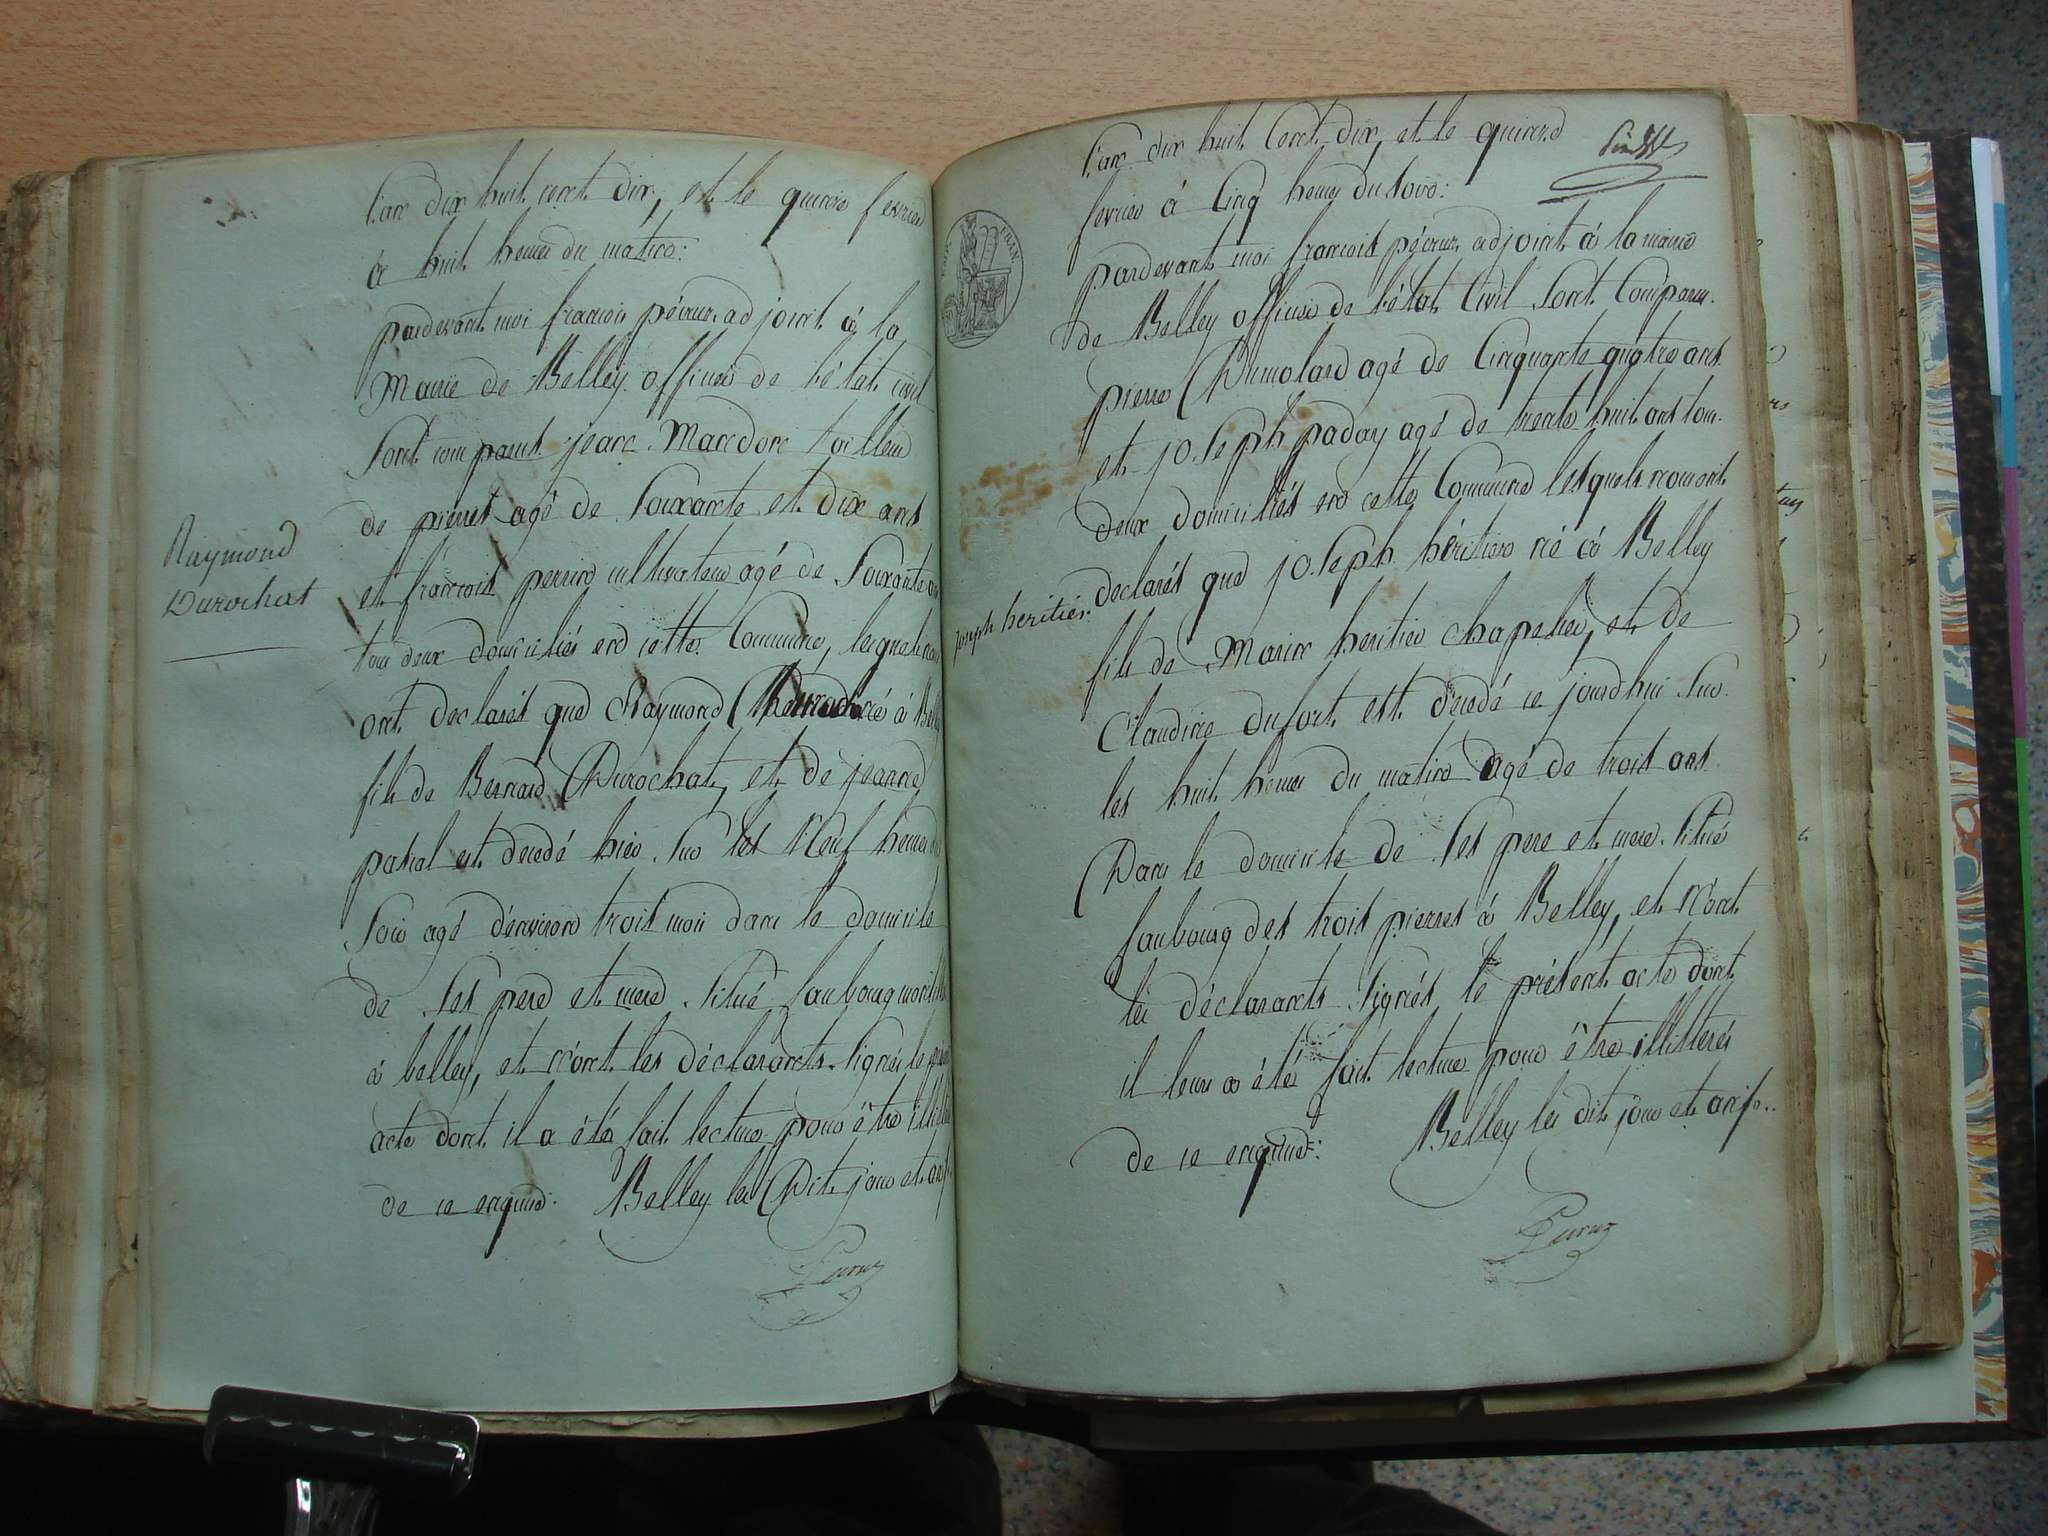 l'an dix huit cent dix, et le quinze fevrier
à huit heures du matin:
pardevant moi francois pécour adjoint à la
Mairie de Belley officier de l'état civil
Sont comparus jean Mandon tailleur
de pierres agé de Soixante et dix ans
et francois perrin cultivateur agé de Soixante ans
tous deux domiciliés en cette Commune, lesquels
ont declarés que Raymond né à Belley
fils de Bernard Durochat, et de jeanne
pascal est decedé hier Sur les Neuf heures du
Soir agé d'environ trois mois dans le domicile
de Ses pere et mere Situé faubourg
à belley, et n'ont les déclarants Signés le
acte dont il a été fait lecture pour être
de ce enquis: Belley les Dit jour et an
Raymond
Durochat
l'an dix huit Cent dix, et le quinze
fevrier à Cinq heures du Soir:
pardevant moi francois pécour adjoint à la mairie
de Belley officier de l'état Civil Sont Comparus
pierre Dumolard agé de Cinquante quatre ans
et joseph paday agé de trente huit ans tous
deux domiciliés en cette Commune lesquels m'ont
declarés que joseph héritier né à Belley
fils de Marin heritier chapelier, et de
Claudine dufort est decedé ce jourdhui Sur
les huit heures du matin agé de trois ans
Dans le domicile de Ses pere et mere Situé
faubourg des trois pierres à Belley, et n'ont
les déclarants Signés le présent acte dont
il leur a été fait lecture pour être illitterés
de ce enquis: Belley les dit jour et an
joseph héritier
FRAN.